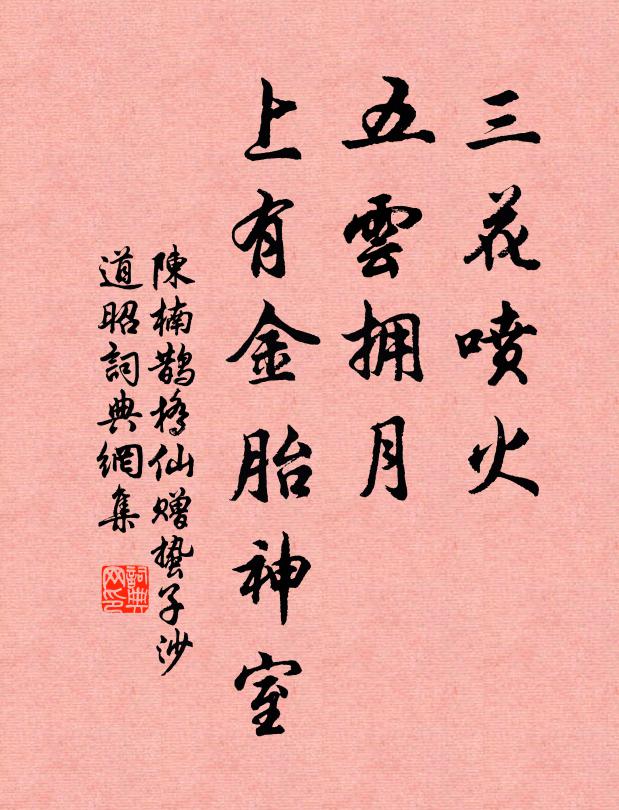 三花喷火
五雲拥月
上有金胎神室
陳楠鹊橋仙赠蛰子沙
道昭詞典網集
詞典网印